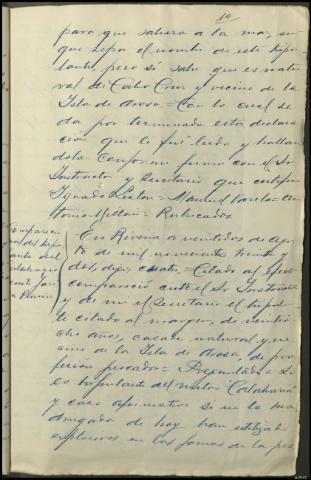 10
para que saliera a la mar, sin
que sepa el nombre de este tripu-
lante, pero sí sabe que es natu-
ral de Cabo Cruz y vecino de la
Isla de Arosa = Con lo cual se
da por terminada esta declara-
ción que le fué leída y hallan-
dola conforme firma con el Sr
Instructor y Secretario que certifico
Ignacio = Manuel Varela = An-
tonio Millán = Rubricados.
Comparecen-
cia del tripu-
lante del
Catalina
José
En Riveira a veintidos de Agos-
to de mil novecientos treinta y
dos, digo, cuatro = Citado al efecto
compareció ante el Sr Instructor
y de mi el Secretario el tripu-
te citado al margen, de veintio-
cho años, casado natural y ve-
cino de la Isla de Arosa, de pro-
fesión pescador = Preguntado = Si
es tripulante del motor Catalina
y caso afirmativo si en la ma-
drugada de hoy han utilizado
explosivos en las faenas de la pes